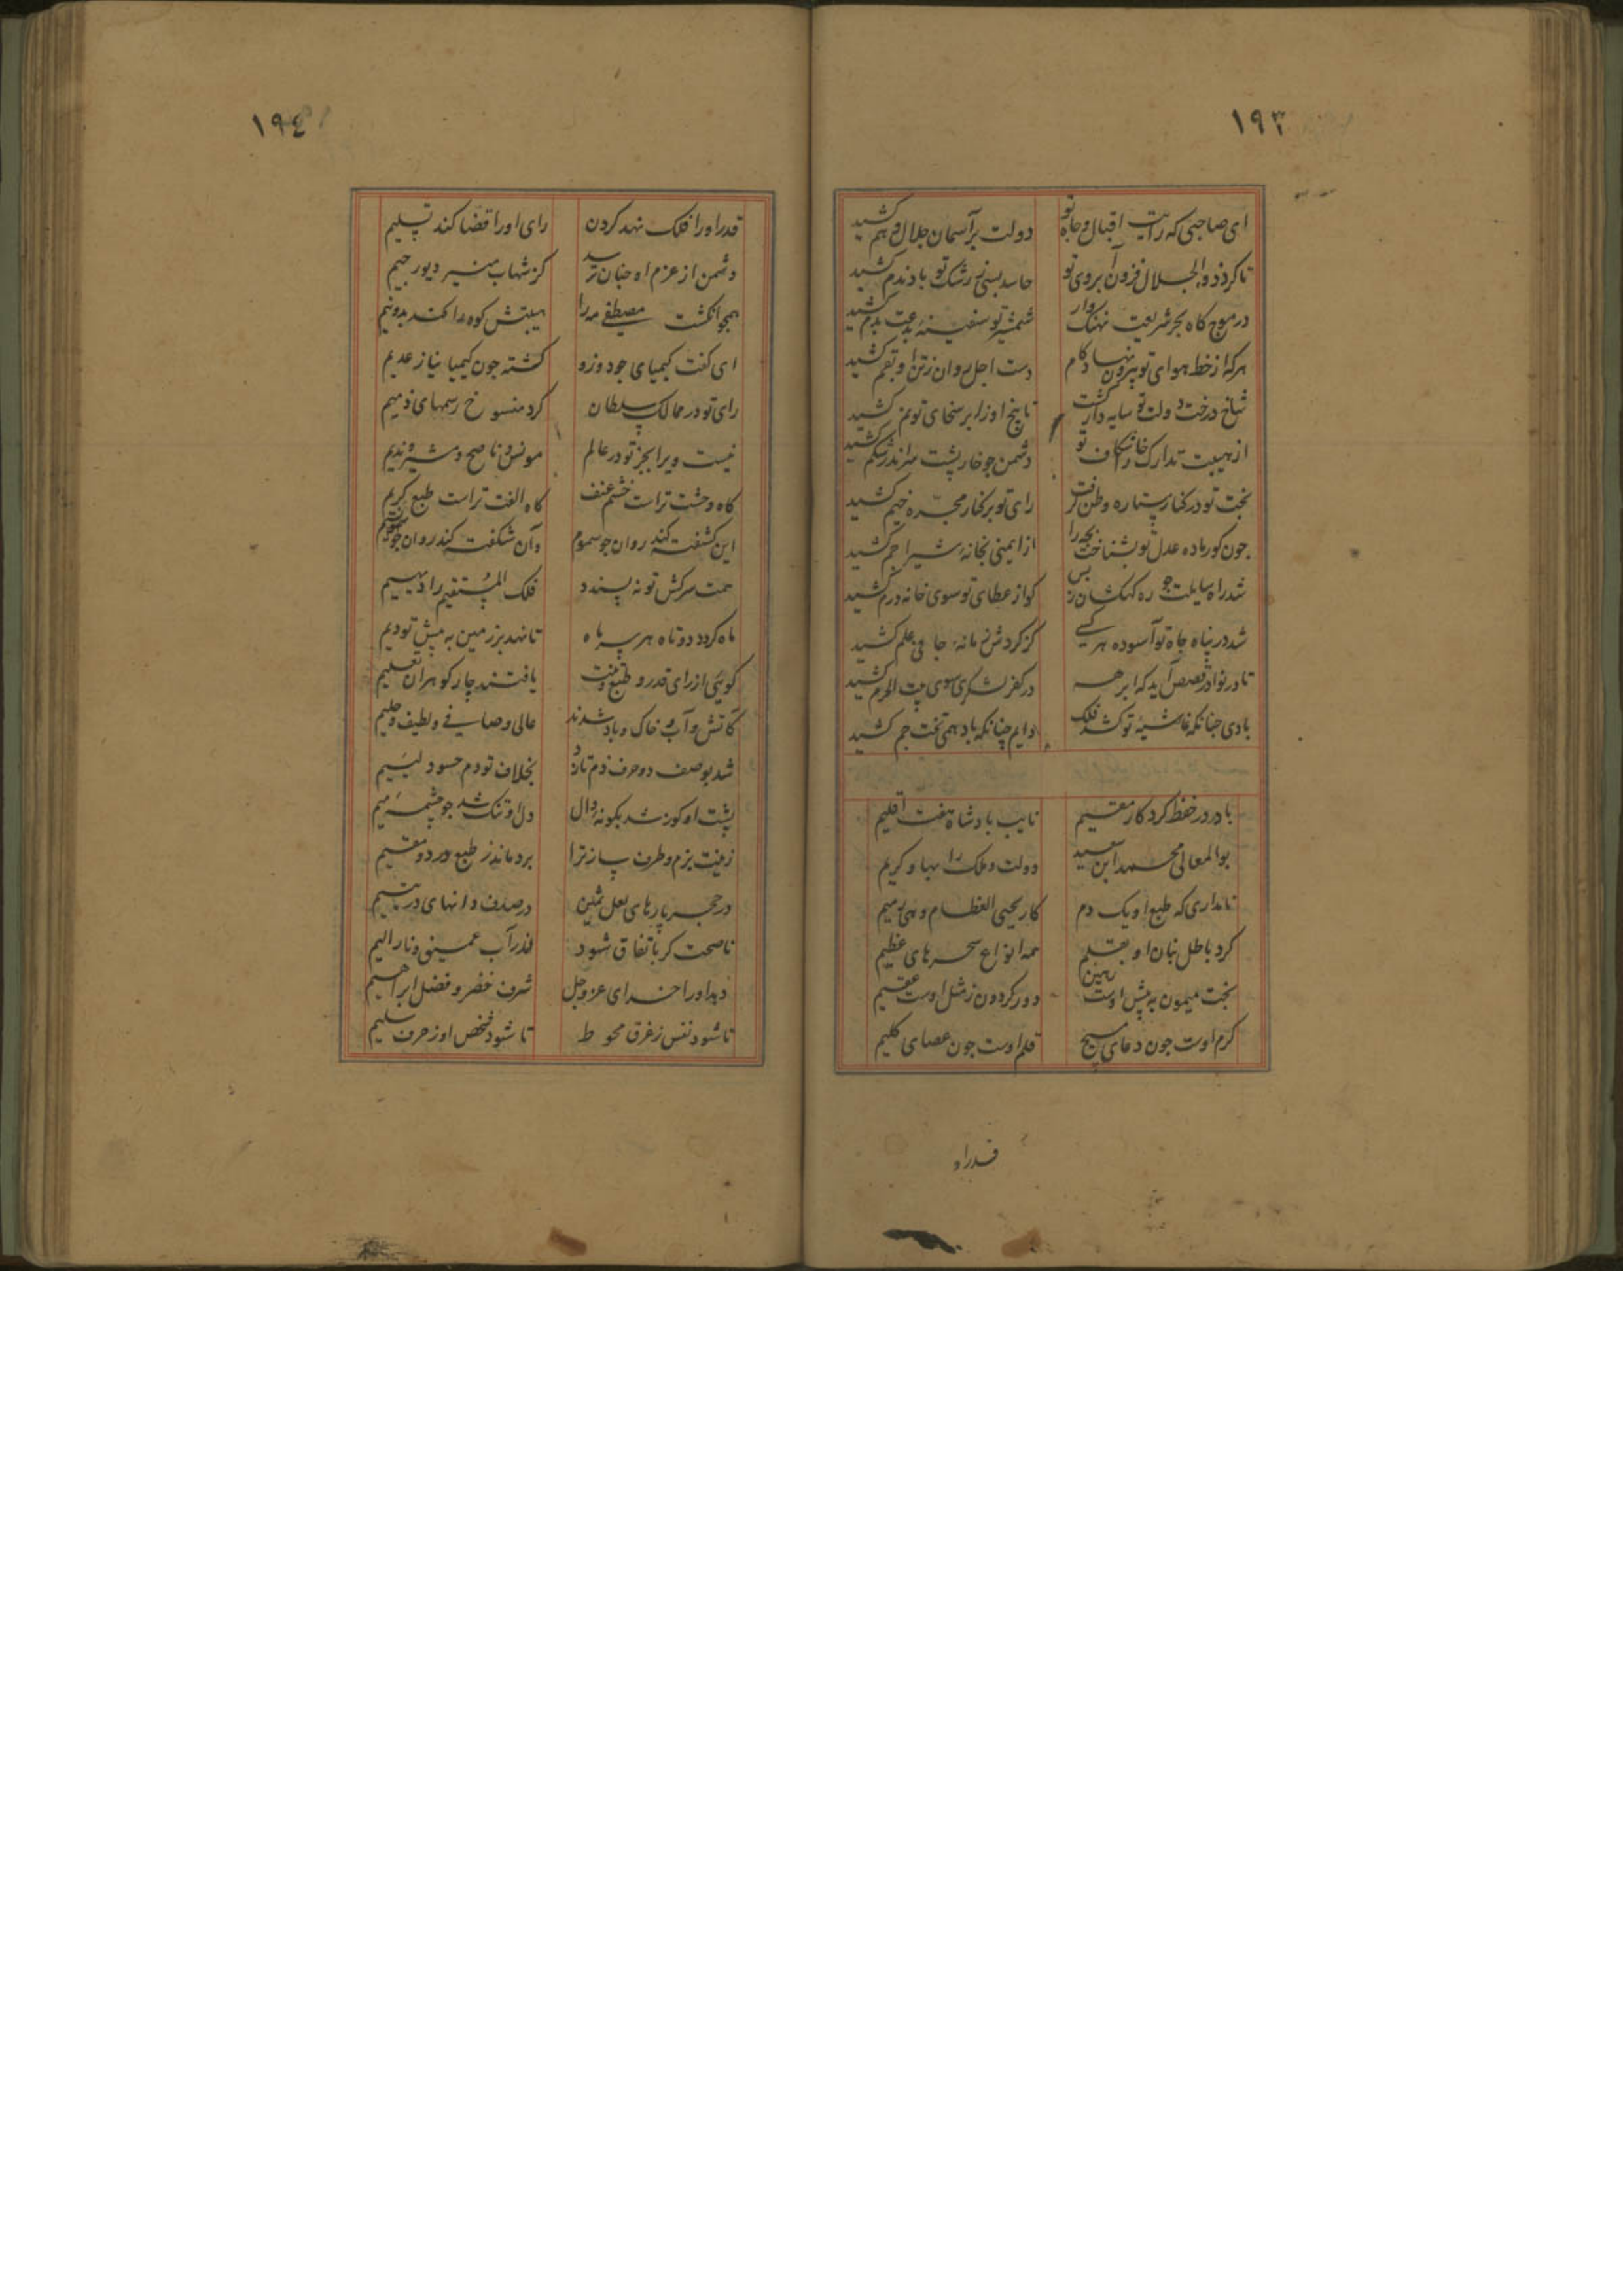 ١٩٣
ای صاحبی که رایت اقبال و جاه تو دولت بر آسمان جلال و هم کشید
تا کرد ذوالجلال فزون آبروی تو حاسد بسی ز رشک تو باد ندم کشید
در موج کاه بحر شریعت نهنک وار شمشیر تو سفینهٔ بدعت بدم کشید
هر که از خط هوای تو بیرون نهاد کام دست اجل روان ز تن او بقم کشید
شاخ درخت دولت تو سایه دار کشت تا بیخ او ز ابر سخای تو نم کشید
از هیبت تدارک خارا شکاف تو دشمن چو خارپشت سر اندر شکم کشید
بخت تو در کنار ستاره وطن کرفت رای تو بر کنار مجره خیم کشید
جون کور ماده عدل تو بشناخت بچه را از ایمنی بخانهٔ شیر اجم کشید
شد راه سایلت جو ره کهکشان ز بس کو از عطای تو سوی خانه درم کشید
شد در پناه جاه تو آسوده هر کسی کز کردش زمانهٔ جافی علم کشید
تا در نوادر قصص آید که ابرهه در کفر لشکری سوی بیت الحرم کشید
بادی جنانکه غاشیهٔ تو کشد فلک دایم چنانکه باد همی تخت جم کشید
باد در حفظ کردکار مقیم نایب پادشاه هفت اقلیم
بوالمعالی محمد ابن سعید دولت و ملک را بها و کریم
نامداری که طبع او یک دم کار یحیی العظام و هی رمیم
کرد باطل بنان او بقلم همه انواع سحرهای عظیم
بخت میمون به پیش اوست رهین دور کردون ز مثل اوست عقیم
کرم اوست جون دعای مسیح قلم اوست جون عصای کلیم
قدر او
١٩٤
قدر او را فلک نهد کردن رای او را قضا کند تسلیم
دشمن از عزم او جنان ترسد کز شهاب منیر دیو رجیم
همجو انکشت مصطفی مه را هیبتش کوه را کند بدونیم
ای کفت کیمیای جود وزو کشته جون کیمیا نیاز عدیم
رای تو در ممالک سلطان کرد منسوخ رسمهای ذمیم
نیست ویرا بجز تو در عالم مونس و ناصح و مشیر و ندیم
کاه وحشت تراست خشم عنف کاه الفت تراست طبع کریم
این کشفته کند روان جو سموم وآن شکفته کند روان جو نسیم
همت سرکش تو نه پسندد فلک المستقیم را دیهیم
ماه کردد دوتاه هر سر ماه تا نهد بر زمین به پیش تو دیم
کوئی از رای قدر و طبع و منت یافتند چار کوهران تعلیم
کآتش و آب و خاک و باد شدند عالی و صافی و لطیف و حلیم
شد بوصف دو حرف ذم نازد بخلاف تو دم حسود لئیم
پشت او کوز شد بکونهٔ دال دل او تنک شد جو چشمهٔ میم
زینت بزم و طرف ساز ترا برد ماند ز طبع و در دو مقیم
در حجر پارهای لعل ثمین در صدف دانهای در یتیم
ناصحت کر باتفاق شود اندر آب عمیق و نار الیم
دهد او را خدای عز و جل شرف خضر و فضل ابراهیم
تا شود نفس ز غرق محوط تا شود شخص او ز حرق سلیم